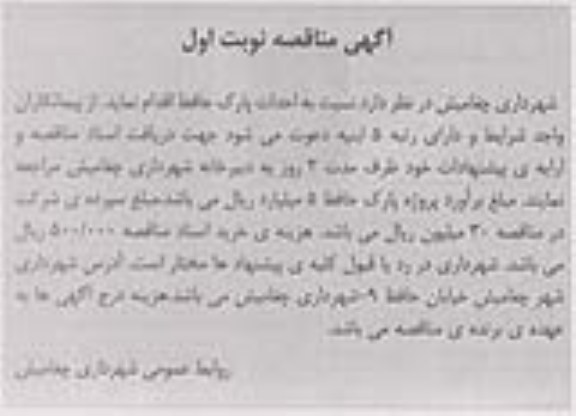 آگهی مناقصه نوبت اول
شهرداری چغامیش در نظر دارد نسبت به احداث پارک حافظ اقدام نماید. از پیمانکاران
واجد شرایط و دارای رتبه ۵ ابنیه دعوت می شود جهت دریافت اسناد مناقصه و
ارایه ی پیشنهادات خود ظرف مدت ۳ روز به دبیرخانه شهرداری چغامیش مراجعه
نمایند. مبلغ برآورد پروژه پارک حافظ ۵ میلیارد ریال می باشد.مبلغ سپرده ی شرکت
در مناقصه ۳۰ میلیون ریال می باشد. هزینه ی خرید اسناد مناقصه ۵۰۰/۰۰۰ ریال
می باشد. شهرداری در رد یا قبول کلیه ی پیشنهاد ها مختار است. آدرس شهرداری
شهر چغامیش خیابان حافظ ۹-شهرداری چغامیش می باشد.هزینه درج آگهی ها به
عهده ی برنده ی مناقصه می باشد.
روابط عمومی شهرداری چغامیش